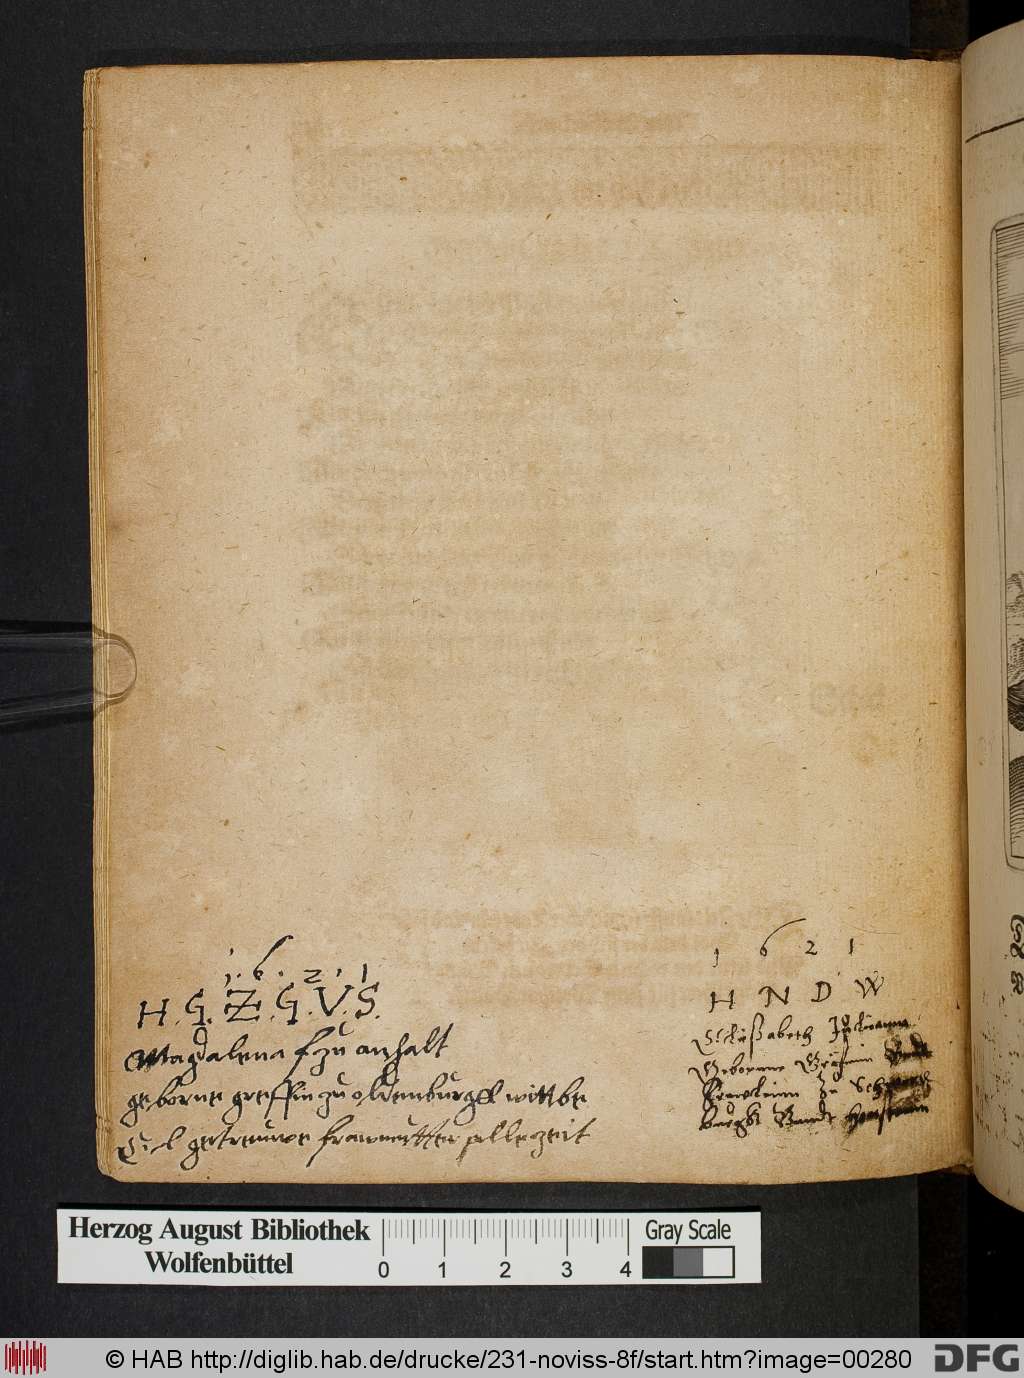 1·6·2·1
H. G. Z. G. V. S.
Magdalena f zu anhalt
geborne greffin zu oldenburgk wittbe
E. l getreuwe frawmutter alle zeit
1 6 2 1
H N D W
Elisabeth Juliana
Geborne Gräfin
Frewlein Zu Schwartz
burgk Vandt
Herzog August Bibliothek
Wolfenbüttel
0 1 2 3 4
Gray Scale
© HAB http://diglib.hab.de/drucke/231-noviss-8f/start.htm?image=00280
DFG